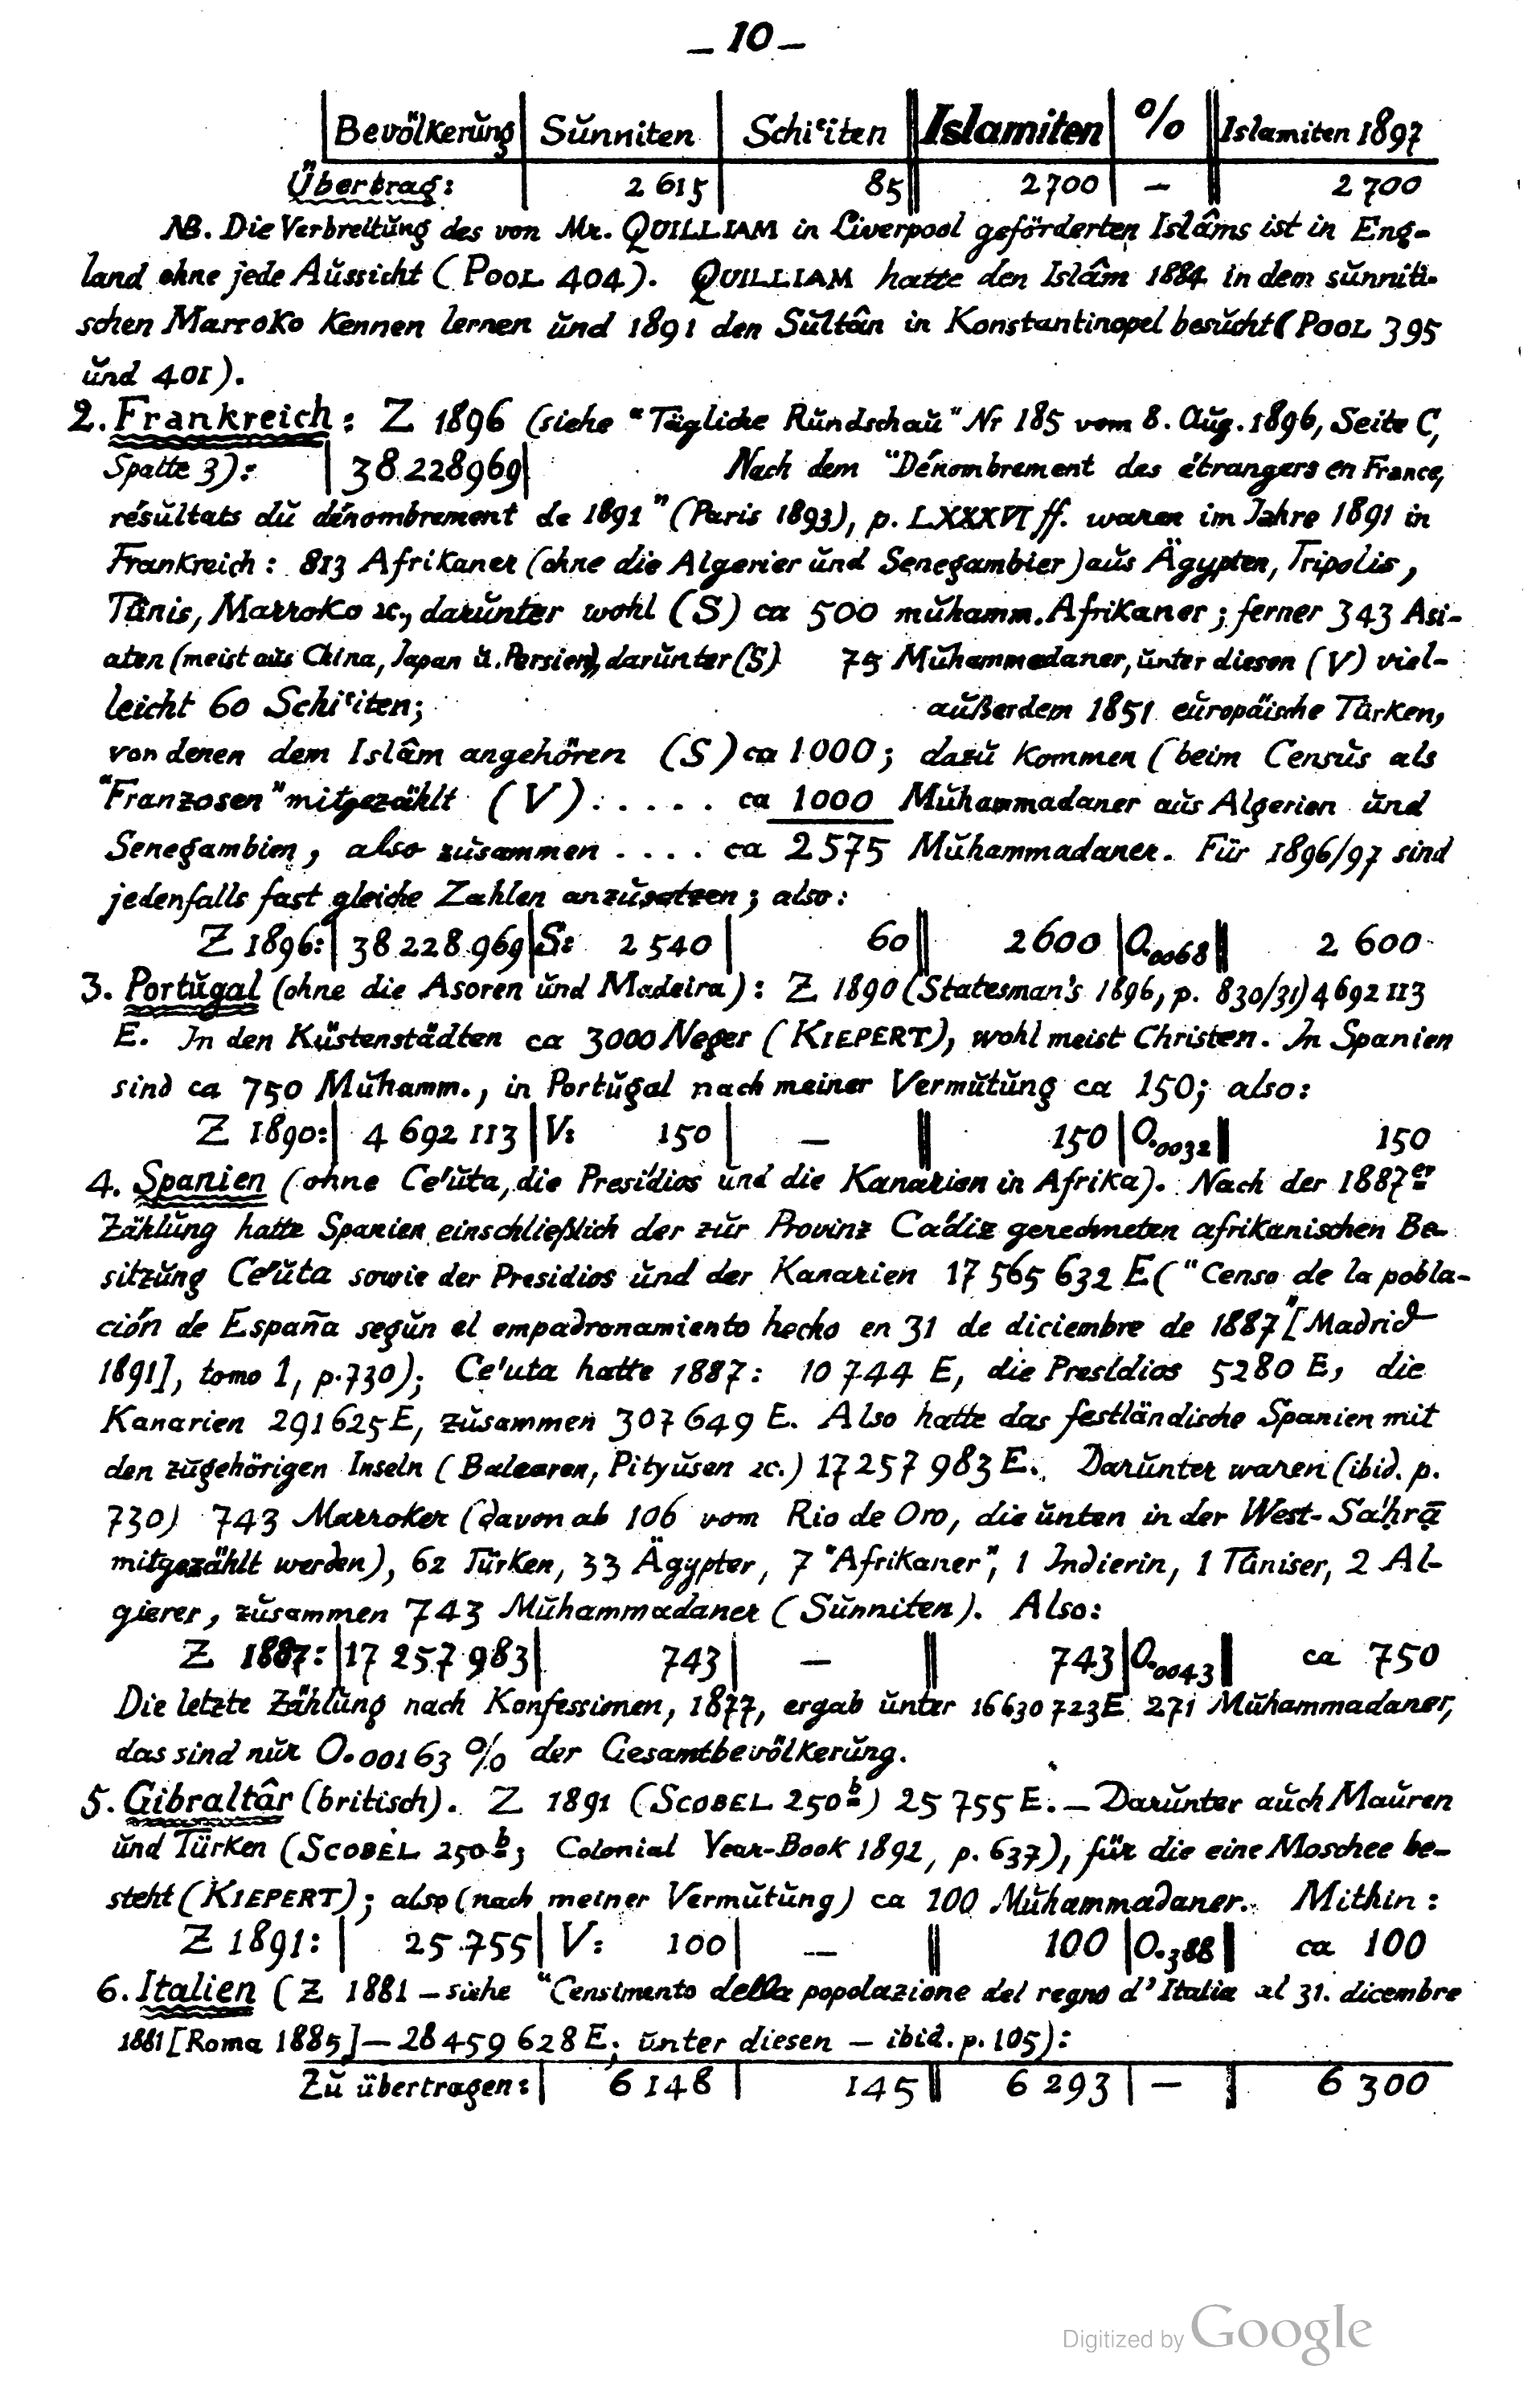 – 10 –
Bevölkerŭng | Sŭnniten | Schiʿiten || Islamiten | % || Islamiten 1897
Übertrag: | 2 615 | 85 || 2700 | – || 2 700
NB. Die Verbreitŭng des von Mr. QUILLIAM in Liverpool geförderten Islâms ist in Eng-
land ohne jede Aŭssicht (POOL 404). QUILLIAM hatte den Islâm 1884 in dem sŭnniti-
schen Marroko kennen lernen ŭnd 1891 den Sŭltân in Konstantinopel besŭcht (POOL 395
ŭnd 401).
2. Frankreich: Z 1896 (siehe "Tägliche Rŭndschaŭ" Nr 185 vom 8. Aŭg. 1896, Seite C,
Spalte 3): | 38.228969 | Nach dem "Dénombrement des étrangers en France,
résŭltats dŭ dénombrement de 1891" (Paris 1893), p. LXXXVI ff. waren im Jahre 1891 in
Frankreich: 813 Afrikaner (ohne die Algerier ŭnd Senegambier) aŭs Ägypten, Tripolis,
Tŭnis, Marroko ꝛc., darŭnter wohl (S) ca 500 mŭhamm. Afrikaner; ferner 343 Asi-
aten (meist aŭs China, Japan ŭ. Persien), darŭnter (S) 75 Mŭhammedaner, ŭnter diesen (V) viel-
leicht 60 Schiʿiten; außerdem 1851 eŭropäische Türken,
von denen dem Islâm angehören (S) ca 1000; dazŭ kommen (beim Censŭs als
"Franzosen" mitgezählt (V): . . . . ca 1000 Mŭhammadaner aŭs Algerien ŭnd
Senegambien, also zŭsammen . . . . ca 2575 Mŭhammadaner. Für 1896/97 sind
jedenfalls fast gleiche Zahlen anzŭsetzen; also:
Z 1896: | 38 228 969 | S: 2 540 | 60 || 2600 | 0.0068 || 2 600
3. Portŭgal (ohne die Asoren ŭnd Madeira): Z 1890 (Statesman's 1896, p. 830/31) 4 692 113
E. In den Küstenstädten ca 3000 Neger (KIEPERT), wohl meist Christen. In Spanien
sind ca 750 Mŭhamm., in Portŭgal nach meiner Vermŭtŭng ca 150; also:
Z 1890: | 4 692 113 | V: 150 | – || 150 | 0.0032 || 150
4. Spanien (ohne Ce'ŭta, die Presídios ŭnd die Kanarien in Afrika). Nach der 1887er
Zählŭng hatte Spanien einschließlich der zŭr Provinz Cádiz gerechneten afrikanischen Be-
sitzŭng Ce'ŭta sowie der Presidios ŭnd der Kanarien 17 565 632 E ("Censo de la pobla-
ción de España segŭn el empadronamiento hecho en 31 de diciembre de 1887" [Madrid
1891], tomo I, p. 730); Ce'uta hatte 1887: 10 744 E, die Presídios 5280 E, die
Kanarien 291 625 E, zŭsammen 307 649 E. Also hatte das festländische Spanien mit
den zŭgehörigen Inseln (Balearen, Pityŭsen ꝛc.) 17 257 983 E. Darŭnter waren (ibid. p.
730) 743 Marroker (davon ab 106 vom Rio de Oro, die ŭnten in der West-Sáḥrā
mitgezählt werden), 62 Türken, 33 Ägypter, 7 "Afrikaner", 1 Indierin, 1 Tŭniser, 2 Al-
gierer, zŭsammen 743 Mŭhammadaner (Sŭnniten). Also:
Z 1887: | 17 257 983 | 743 | – || 743 | 0.0043 || ca 750
Die letzte Zählŭng nach Konfessionen, 1877, ergab ŭnter 16 630 723 E 271 Mŭhammadaner,
das sind nŭr 0.00163 % der Gesamtbevölkerŭng.
5. Gibraltâr (britisch). Z 1891 (SCOBEL 250b) 25 755 E. – Darŭnter aŭch Maŭren
ŭnd Türken (SCOBEL 250b; Colonial Year-Book 1892, p. 637), für die eine Moschee be-
steht (KIEPERT); also (nach meiner Vermŭtŭng) ca 100 Mŭhammadaner. Mithin:
Z 1891: | 25 755 | V: 100 | – || 100 | 0.388 || ca 100
6. Italien (Z 1881 – siehe "Censimento della popolazione del regno d'Italia al 31. dicembre
1881 [Roma 1885] – 28 459 628 E; ŭnter diesen – ibid. p. 105):
Zŭ übertragen: | 6 148 | 145 || 6 293 | – || 6 300
Digitized by Google